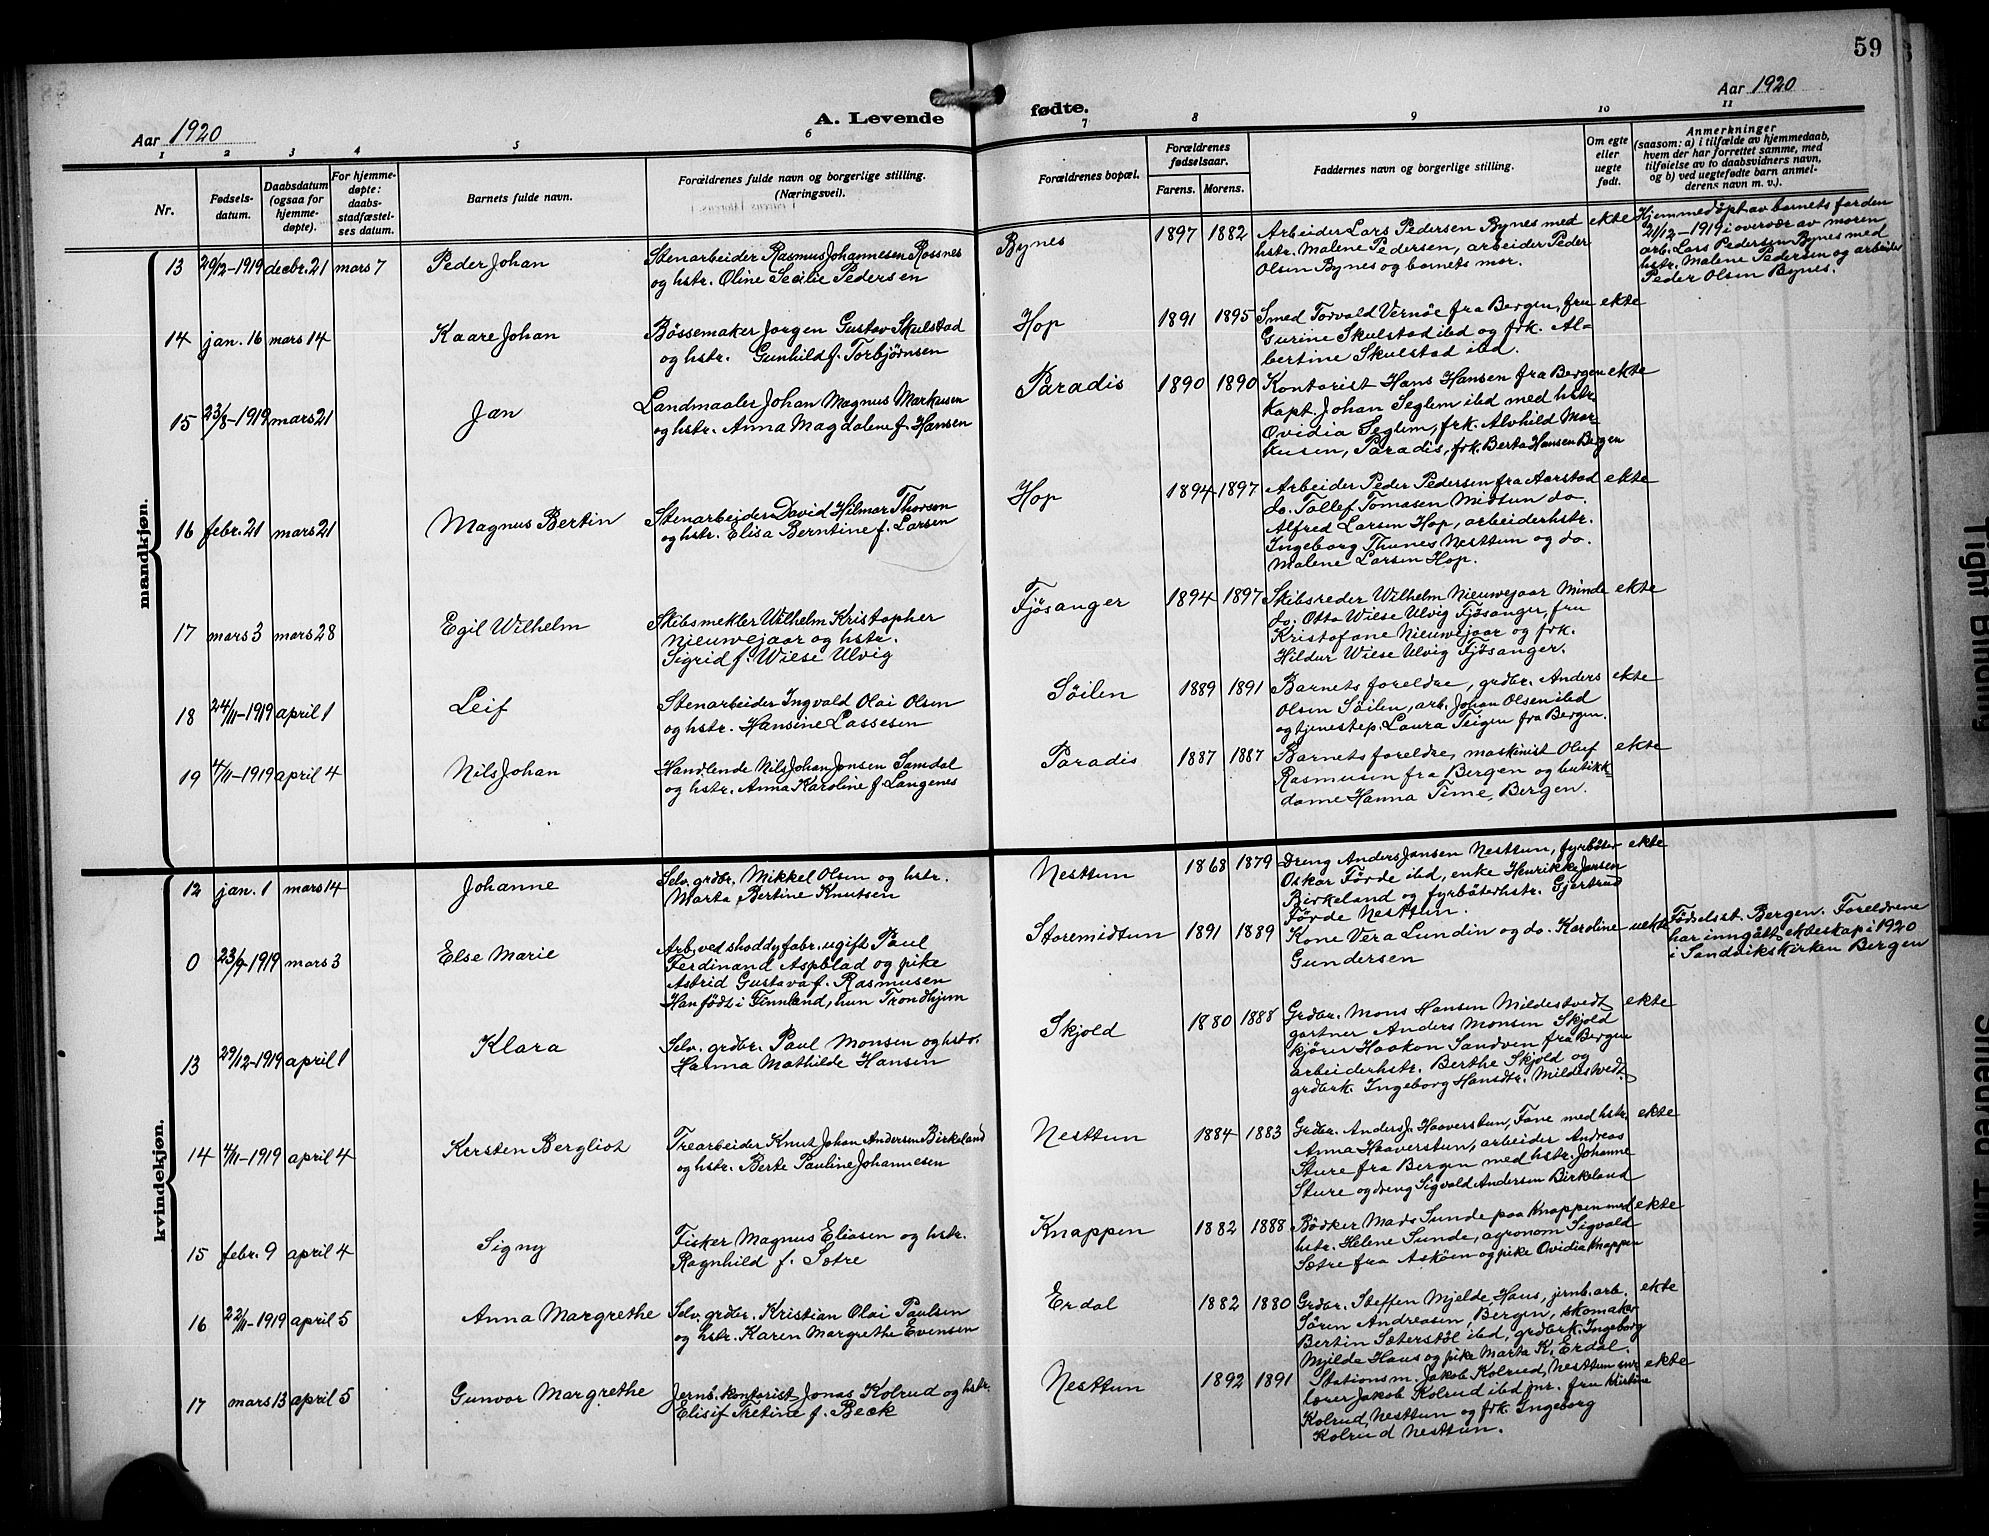 59
Aar 1920
A. Levende
fødte.
Aar 1920
1 2 3 4 5 6 7 8 9 10 11
Nr.
Fødsels-
datum.
Daabsdatum
(ogsaa for
hjemme-
døpte).
For hjemme-
døpte:
daabs-
stadfæstel-
ses datum.
Barnets fulde navn.
Forældrenes fulde navn og borgerlige stilling.
(Næringsvei).
Forældrenes bopæl.
Forældrenes
fødselsaar.
Farens. Morens.
Faddernes navn og borgerlige stilling.
Om egte
eller
uegte
født.
Anmerkninger
(saasom: a) i tilfælde av hjemmedaab,
hvem der har forrettet samme, med
tilføielse av to daabsvidners navn,
og b) ved uegtefødte barn anmel-
derens navn m. v.).
mandkjøn.
13 20/12-1919 decbr. 21 mars 7 Peder Johan
Stenarbeider Rasmus Johannesen Rossnes
og hstr. Oline Secilie Pedersen
Bynes 1897 1882
Arbeider Lars Pedersen Bynes med
hstr. Malene Pedersen, arbeider Peder
Olsen Bynes og barnets mor.
ekte
Hjemmedöpt av barnets far den
21/12-1919 i overvær av moren
arb. Lars Pedersen Bynes med
hstr. Malene Pedersen og arbeider
Peder Olsen Bynes.
14 jan. 16 mars 14 Kaare Johan
Bössemaker Jørgen Gustav Skulstad
og hstr. Gunhild f. Torbjørnsen
Hop 1891 1895
Smed Torvald Vernöe fra Bergen, fru
Gurine Skulstad ibd og frk. Al-
bertine Skulstad ibd.
ekte
15 23/8-1919 mars 21 Jan
Landmaaler Johan Magnus Markusen
og hstr. Anna Magdalene f. Hansen
Paradis 1890 1890
Kontorist Hans Hansen fra Bergen
Kapt. Johan Seglem ibd med hstr
Ovidia Seglem, frk. Alvhild Mar
kusen, Paradis, frk. Berta Hansen Bergen
ekte
16 febr. 21 mars 21 Magnus Bertin
Stenarbeider David Hilmar Thorsen
og hstr. Elisa Berntine f. Larsen
Hop 1894 1897
Arbeider Peder Pedersen fra Aarstad
do. Tollef Tomasen Midtun do.
Alfred Larsen Hop, arbeiderhstr.
Ingeborg Thunes Nesttun og do.
Malene Larsen Hop.
ekte
17 mars 3 mars 28 Egil Wilhelm
Skibsmekler Wilhelm Kristopher
Nieuwejaar og hstr.
Sigrid f. Wiese Ulvig
Fjösanger 1894 1897
Skibsreder Wilhelm Nieuwejaar Minde
do. Otto Wiese Ulvig Fjösanger, fru
Kristofane Nieuwejaar og frk.
Hildur Wiese Ulvig Fjösanger.
ekte
18 24/11-1919 april 1 Leif
Stenarbeider Ingvald Olai Olsen
og hstr. Hansine Lassesen
Söilen 1889 1891
Barnets foreldre, grdbr. Anders
Olsen Söilen, arb. Johan Olsen ibd
og tjenestep. Laura Teigen fra Bergen.
ekte
19 4/11-1919 april 4 Nils Johan
Handlende Nils Johan Jonsen Samdal
og hstr. Anna Karoline f. Langenes
Paradis 1887 1887
Barnets foreldre, maskinist Oluf
Rasmusen fra Bergen og butikk-
dame Hanna Time, Bergen.
ekte
kvindekjøn.
12 jan. 1 mars 14 Johanne
Selv. grdbr. Mikkel Olsen og hstr.
Marta Bertine Knutsen
Nesttun 1868 1879
Dreng Anders Jansen Nesttun, fyrböter
Oskar Förde ibd, enke Henrikke Jansen
Birkeland og fyrböterhstr. Gjertrud
Förde Nesttun.
ekte
0 23/9-1919 mars 3 Else Marie
Arb. ved shoddyfabr. ugift Paul
Ferdinand Aspblad og pike
Astrid Gustava f. Rasmusen
Han född i Finnland, hun Trondhjem
Storemidtun 1891 1889
Kone Vera Lundin og do. Karoline
Gundersen
uekte
Födselsst. Bergen. Foreldrene
har inngått ekteskap i 1920
i Sandvikskirken Bergen
13 29/12-1919 april 1 Klara
Selv. grdbr. Paul Monsen og hstr.
Hanna Mathilde Hansen
Skjold 1880 1888
Grdbr. Mons Hansen Mildestvedt
gartner Anders Monsen Skjold
kjörer Haakon Sandven fra Bergen
arbeiderhstr. Berthe Skjold og
grdbrk. Ingeborg Hansdtr. Mildestvedt.
ekte
14 4/11-1919 april 4 Kersten Bergliot
Trearbeider Knut Johan Andersen Birkeland
og hstr. Berte Pauline Johannesen
Nesttun 1884 1883
Grdbr. Anders J. Haaverstun, Fane med hstr.
Anna Haaverstun, arbeider Andreas
Sture fra Bergen med hstr. Johanne
Sture og dreng Sigvald Andersen Birkeland
ekte
15 febr. 9 april 4 Signy
Fisker Magnus Eliasen og hstr.
Ragnhild f. Sætre
Knappen 1882 1888
Bödker Mads Sunde paa Knappen med
hstr. Helene Sunde, agronom Sigvald
Sætre fra Asköen og pike Ovidia Knappen
ekte
16 22/11-1919 april 5 Anna Margrethe
Selv. grdbr. Kristian Olai Paulsen
og hstr. Karen Margrethe Evensen
Erdal 1882 1880
Grdbr. Steffen Mjelde, Haus, jernb. arb.
Sören Andreasen, Bergen, skomaker
Bertin Sæterstöl ibd, grdbrk. Ingeborg
Mjelde Haus og pike Marta K. Erdal.
ekte
17 mars 13 april 5 Gunvor Margrethe
Jernb. kontorist Jonas Kolrud og hstr.
Elisif Tretine f. Beck
Nesttun 1892 1891
Stationsm. Jakob Kolrud, Nesttun
Jakob Kolrud ibd jnr. fru Kirstine
Kolrud, Nesttun og frk. Ingeborg
Kolrud Nesttun.
ekte
Tight Binding
Smeared Ink